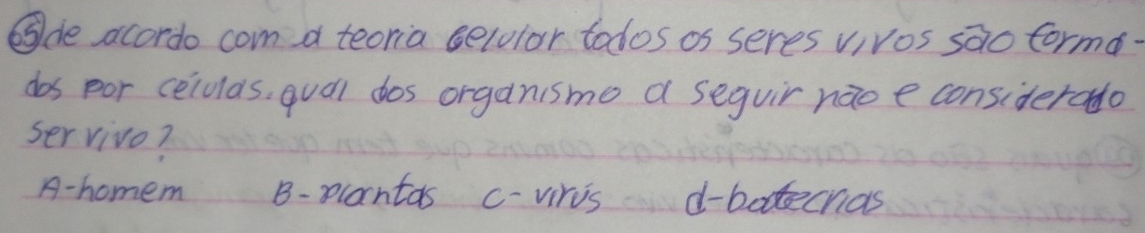 65 de acordo com a teoria celular todos os seres vivos são forma-
dos por células. qual dos organismo a seguir não e considerado
ser vivo?
A-homem B-plantas C-virús d-batecrias